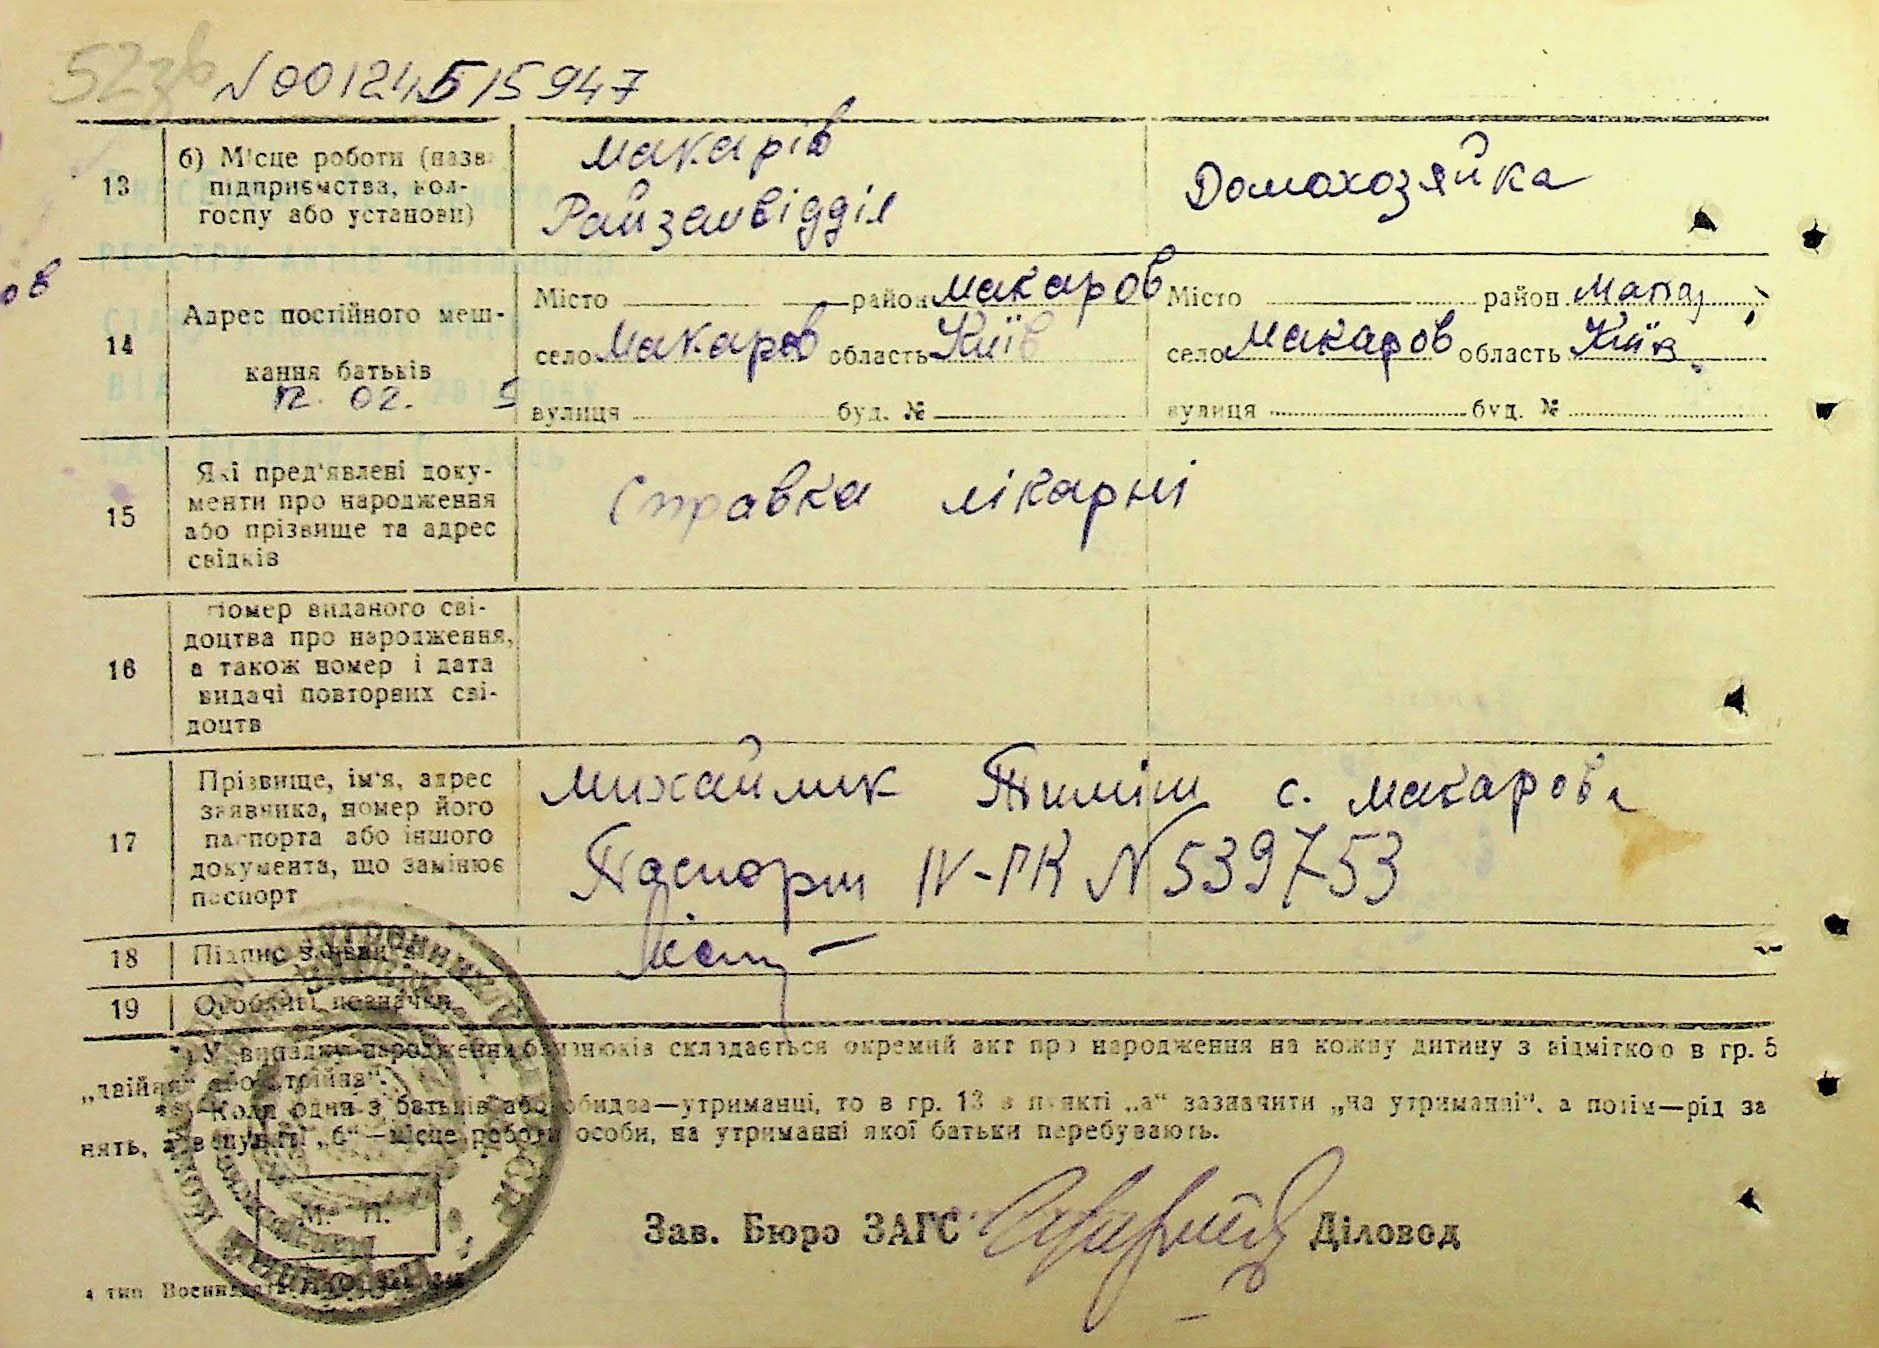 52зв N 00124515947
13 б) Місце роботи (назв
підприємства, кол-
госпу або установи)
Макарів
Райземвідділ
Домохозяйка
14 Адрес постійного меш-
кання батьків
12. 02. 5
Місто район Макаров
село Макаров область Київ
вулиця буд. №
Місто район Мака
село Макаров область Київ
вулиця буд. №
15 Які пред'явлені доку-
менти про народження
або прізвище та адрес
свідків
Справка лікарні
16 Номер виданого сві-
доцтва про народження,
а також номер і дата
видачі повторних сві-
доцтв
17 Прізвище, ім'я, адрес
заявника, номер його
паспорта або іншого
документа, що замінює
паспорт
Михайлик Тиміш с. Макарова
Паспорт IV-ГК N 539753
18 Підпис заявника
19 Особливі позначки
*) У випадку народження близнюків складається окремий акт про народження на кожну дитину з відміткою в гр. 5
„двійня" або „трійня".
**) Коли один з батьків або обидва—утриманці, то в гр. 13 в пункті „а" зазначити „на утриманні", а потім—рід за
нять, а в пункті „б"—місце роботи особи, на утриманні якої батьки перебувають.
М. П.
Зав. Бюро ЗАГС Діловод